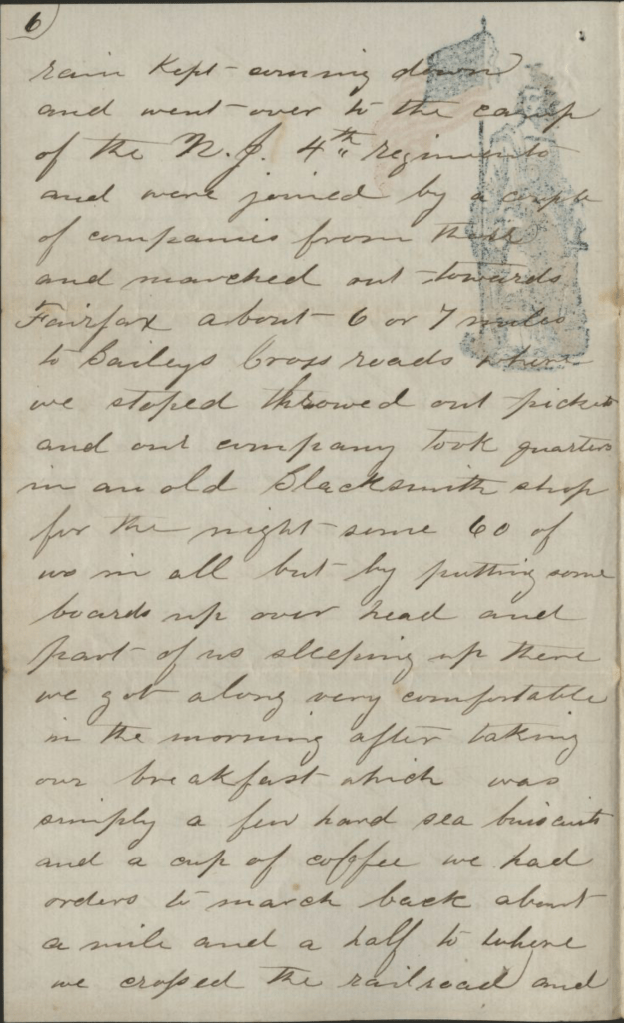 6
rain Kept coming down
and went over to the camp
of the N.J. 4th regiments
and were joined by a couple
of companies from
and marched out towards
Fairfax about 6 or 7 miles
to Baileys Cross roads where
we stoped throwed out pickets
and our company took quarters
in an old Blacksmith shop
for the night some 60 of
us in all but by putting some
boards up over head and
part of us sleeping up there
we got along very comfortable
in the morning after taking
our breakfast which was
simply a few hard sea buiscuits
and a cup of coffee we had
orders to march back about
a mile and a half to where
we crossed the railroad and